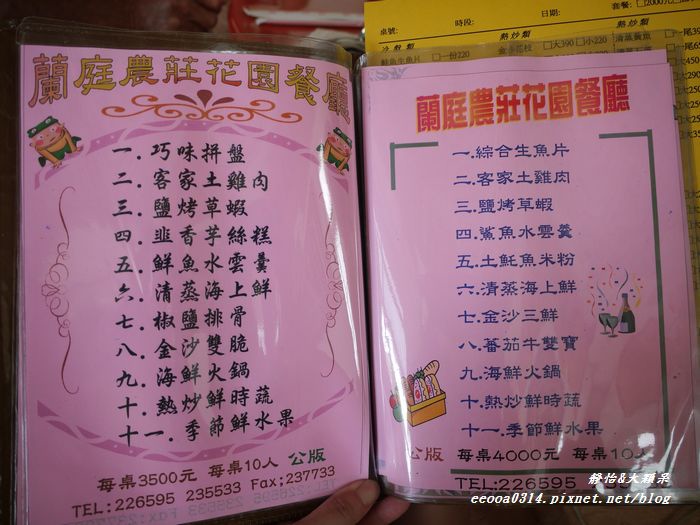 蘭庭農莊花園餐廳
一．巧味拼盤
二．客家土雞肉
三．鹽烤草蝦
四．韭香芋絲糕
五．鮮魚水雲羹
六．清蒸海上鮮
七．椒鹽排骨
八．金沙雙脆
九．海鮮火鍋
十．熱炒鮮時蔬
十一．季節鮮水果
每桌3500元 每桌10人 公版
TEL:226595 235533 Fax:237733
蘭庭農莊花園餐廳
一.綜合生魚片
二.客家土雞肉
三.鹽烤草蝦
四.鯊魚水雲羹
五.土魠魚米粉
六.清蒸海上鮮
七.金沙三鮮
八.番茄牛雙寶
九.海鮮火鍋
十.熱炒鮮時蔬
十一.季節鮮水果
公版 每桌4000元 每桌10人
TEL:226595
桌號: 時段: 日期: 套餐: □2000元
冷盤類 熱炒類
鮭魚生魚片 □一份220 金沙花枝 □大390 □小220 清蒸黃魚
靜怡&大顆呆
eeooa0314.pixnet.net/blog